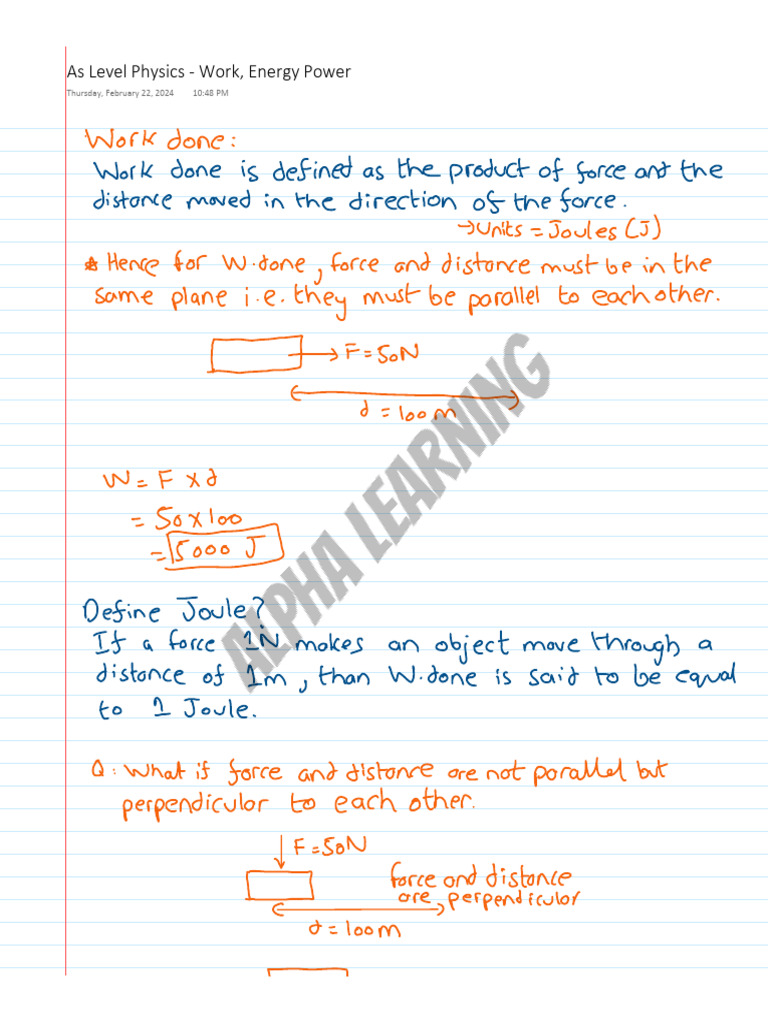 As Level Physics - Work, Energy Power
Thursday, February 22, 2024 10:48 PM
Work done:
Work done is defined as the product of force and the
distance moved in the direction of the force.
→ Units = Joules (J)
* Hence for W.done, force and distance must be in the
same plane i.e. they must be parallel to each other.
F = 50N
d = 100m
W = F x d
= 50 x 100
= 5000 J
Define Joule?
If a force 1N makes an object move through a
distance of 1m, than W.done is said to be equal
to 1 Joule.
Q: What if force and distance are not parallel but
perpendicular to each other.
F = 50N
force and distance
are perpendicular
d = 100m
ALPHA LEARNING